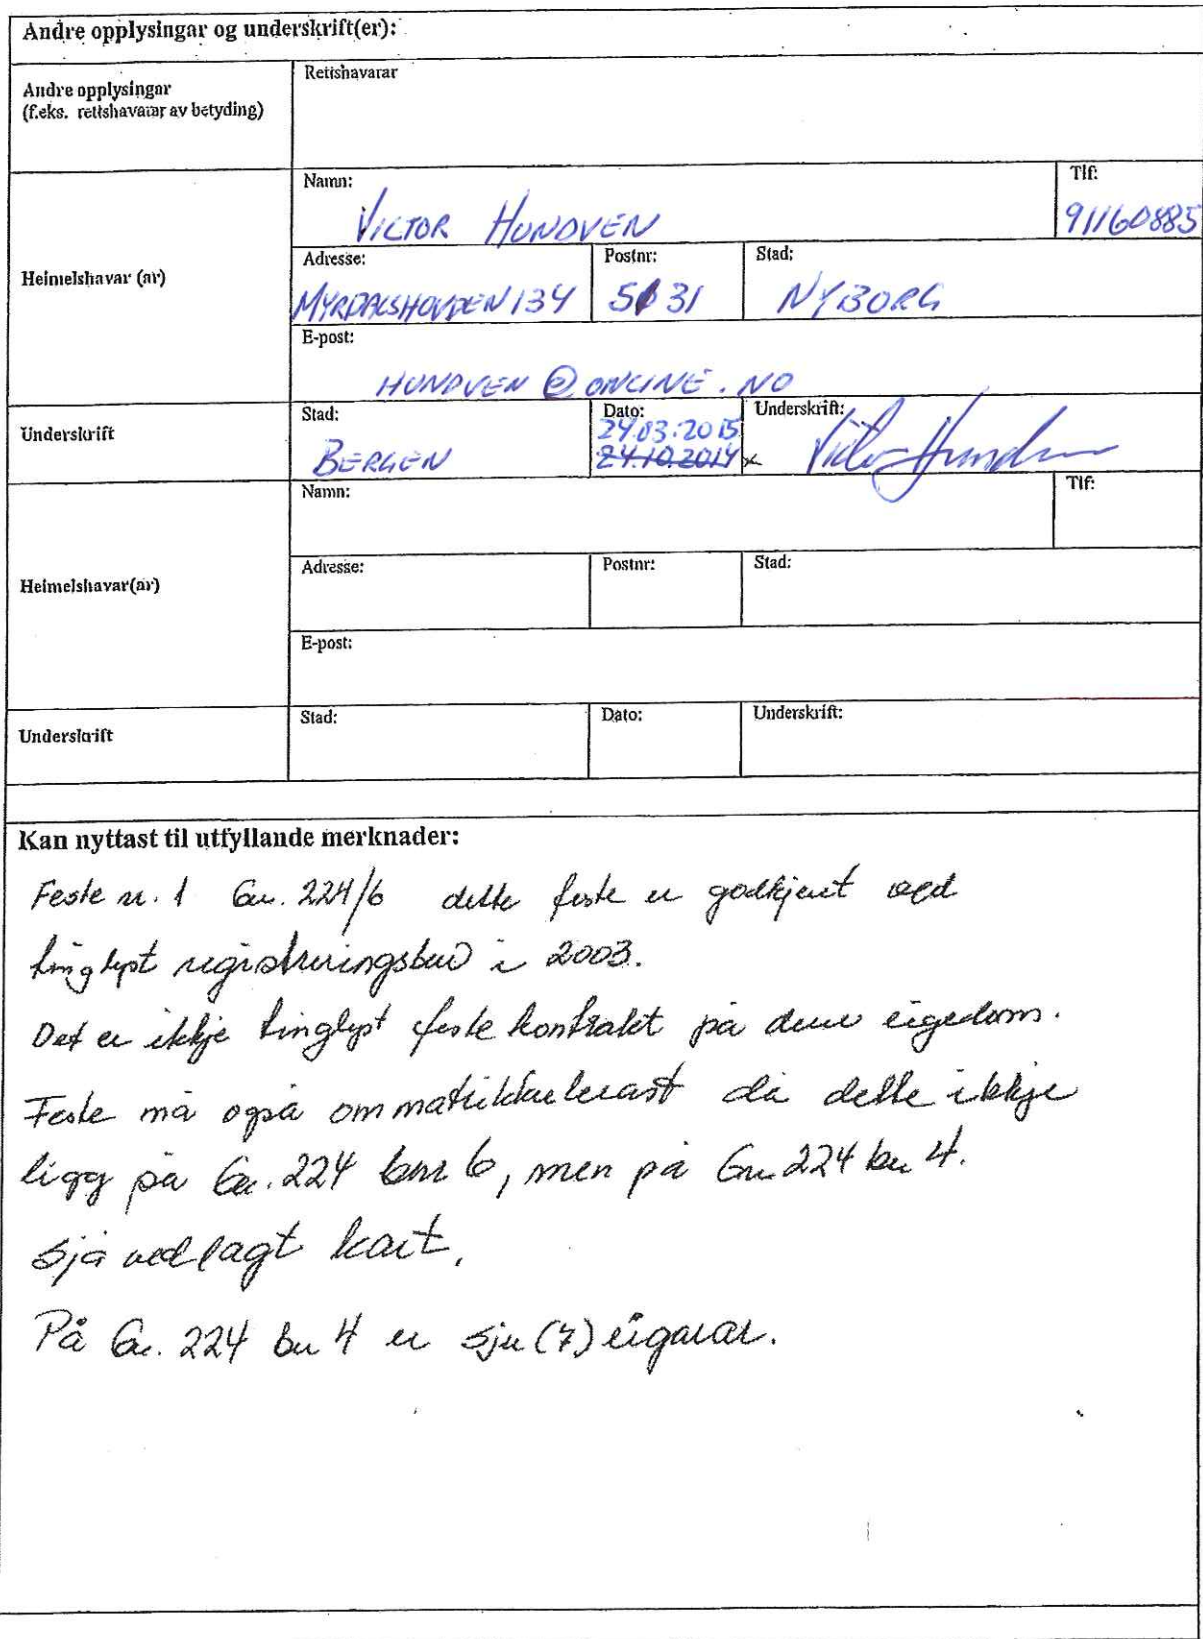 Andre opplysingar og underskrift(er):
Andre opplysingar
(f.eks. rettshavarar av betyding)
Rettshavarar
Heimelshavar (ar)
Namn:
VICTOR HUNDVEN
Tlf:
91160885
Adresse:
MYRDALSHOVDEN 134
Postnr:
5131
Stad:
NYBORG
E-post:
HUNDVEN @ ONLINE.NO
Underskrift
Stad:
BERGEN
Dato:
24.03.2015
24.10.2014 x
Underskrift:
Victor Hundven
Heimelshavar(ar)
Namn:
Tlf:
Adresse:
Postnr:
Stad:
E-post:
Underskrift
Stad:
Dato:
Underskrift:
Kan nyttast til utfyllande merknader:
Feste nr. 1 Gnr. 224/6 dette feste er godkjent ved
tinglyst registreringsbrev i 2003.
Det er ikkje tinglyst feste kontrakt på denne eigedom.
Feste må også ommatrikkulerast då dette ikkje
ligg på Gnr. 224 bnr 6, men på Gnr 224 bnr 4.
Sjå vedlagt kart.
På Gnr. 224 bnr 4 er sju (7) eigarar.